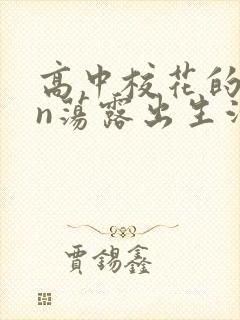 高中校花的
n蕩露出生
賈錫鑫